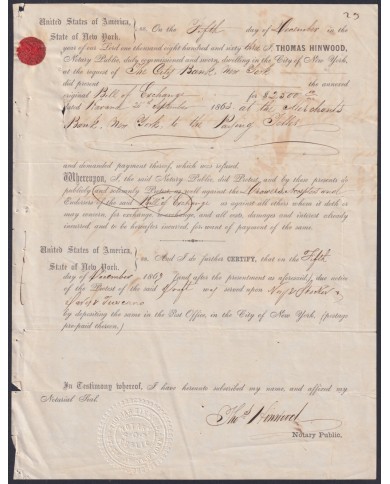 29
United States of America,
State of New York. } ss. On the Fifth day of December in the
year of our Lord one thousand eight hundred and sixty I, THOMAS HINWOOD,
Notary Public, duly commissioned and sworn, dwelling in the City of New York,
at the request of The City Bank, New York
did present the annexed
original Bill of Exchange for $2,500
dated Havana September 1863 at the Merchants
Bank, New York to the Paying Teller
and demanded payment thereof, which was refused.
Whereupon, I, the said Notary Public, did Protest, and by these presents do
publicly and solemnly Protest as well against the Drawers Acceptors and
Endorsers of the said Bill of Exchange as against all others whom it doth or
may concern, for exchange, re-exchange, and all costs, damages and interest already
incurred, and to be hereafter incurred, for want of payment of the same.
United States of America,
State of New York. } ss. And I do further CERTIFY, that on the Fifth
day of December 1863 and after the presentment as aforesaid, due notice
of the Protest of the said Draft was served upon
by depositing the same in the Post Office, in the City of New York, (postage
pre-paid thereon.)
In Testimony whereof, I have hereunto subscribed my name, and affixed my
Notarial Seal.
Thos Hinwood
Notary Public.